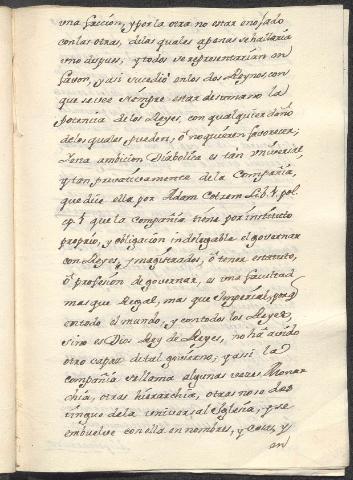 una faccion, y por la otra no estar enojado
con las otras, de las quales apenas se hallaria
uno despues; y todos se representarian en
favor, y asi sucedio en los dos Reynos, con
que se uso siempre estar destinario la
potencia de los Reyes, con qualquier daño
de los quales pueden, ó no quieren favorecer;
Zona ambicion Diabolica es tan universal
y tan privativamente de la Compañia,
que dice ella por Adam Cotrem Lib. 4. pol.
cp. 1 que la compañia tiene por instituto
proprio, y obligacion indelegable el governar
con Reyes, y magistrados, ó tener estatuto,
ó profesion de governar, es una facultad
mas que Regal, mas que Imperial, porq
en todo el mundo, y con todos los Reyes,
sino es Dios Rey de Reyes, no ha avido
otro capaz de tal govierno; y assi la
compañia se llama algunas vezes Monar
chia, otras hierarchia, otras no se des
tingue de la universal Iglesia, y se
embuelve con ella en nombres, y y
en